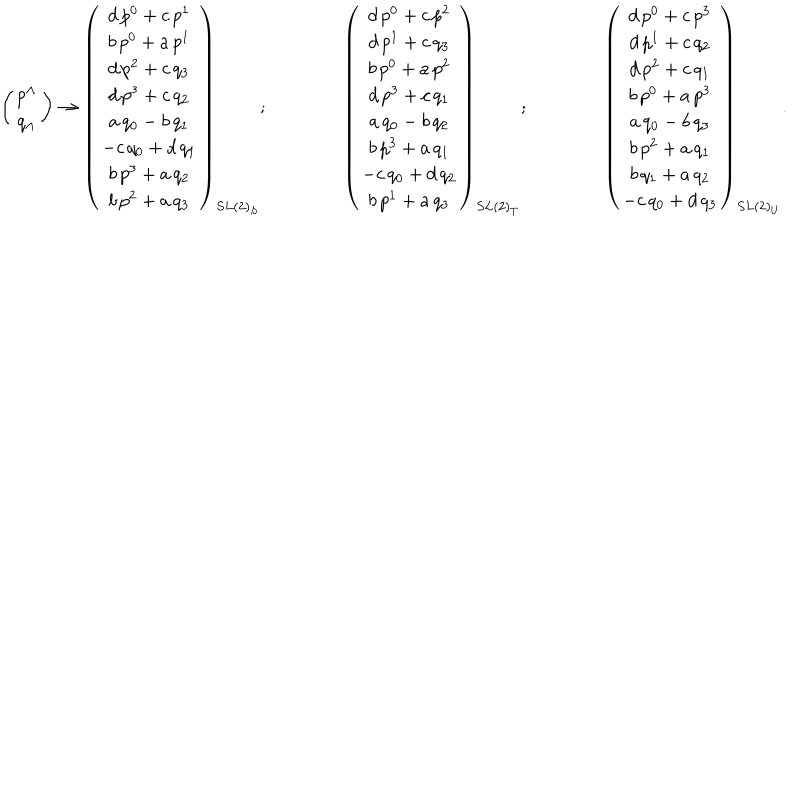 \left( \begin{array}{c} p^\Lambda \\ q_\Lambda \end{array} \right) \to \left( \begin{array}{c} d\,p^0 + c\,p^1 \\ b\,p^0 + a\,p^1 \\ d\,p^2 + c\,q_3 \\ d\,p^3 + c\,q_2 \\ a\,q_0 - b\,q_1 \\ -c\,q_0 + d\,q_1 \\ b\,p^3 + a\,q_2 \\ b\,p^2 + a\,q_3 \end{array} \right)_{SL(2)_S} ; \qquad \left( \begin{array}{c} d\,p^0 + c\,p^2 \\ d\,p^1 + c\,q_3 \\ b\,p^0 + a\,p^2 \\ d\,p^3 + c\,q_1 \\ a\,q_0 - b\,q_2 \\ b\,p^3 + a\,q_1 \\ -c\,q_0 + d\,q_2 \\ b\,p^1 + a\,q_3 \end{array} \right)_{SL(2)_T} ; \qquad \left( \begin{array}{c} d\,p^0 + c\,p^3 \\ d\,p^1 + c\,q_2 \\ d\,p^2 + c\,q_1 \\ b\,p^0 + a\,p^3 \\ a\,q_0 - b\,q_3 \\ b\,p^2 + a\,q_1 \\ b\,q_1 + a\,q_2 \\ -c\,q_0 + d\,q_3 \end{array} \right)_{SL(2)_U} .